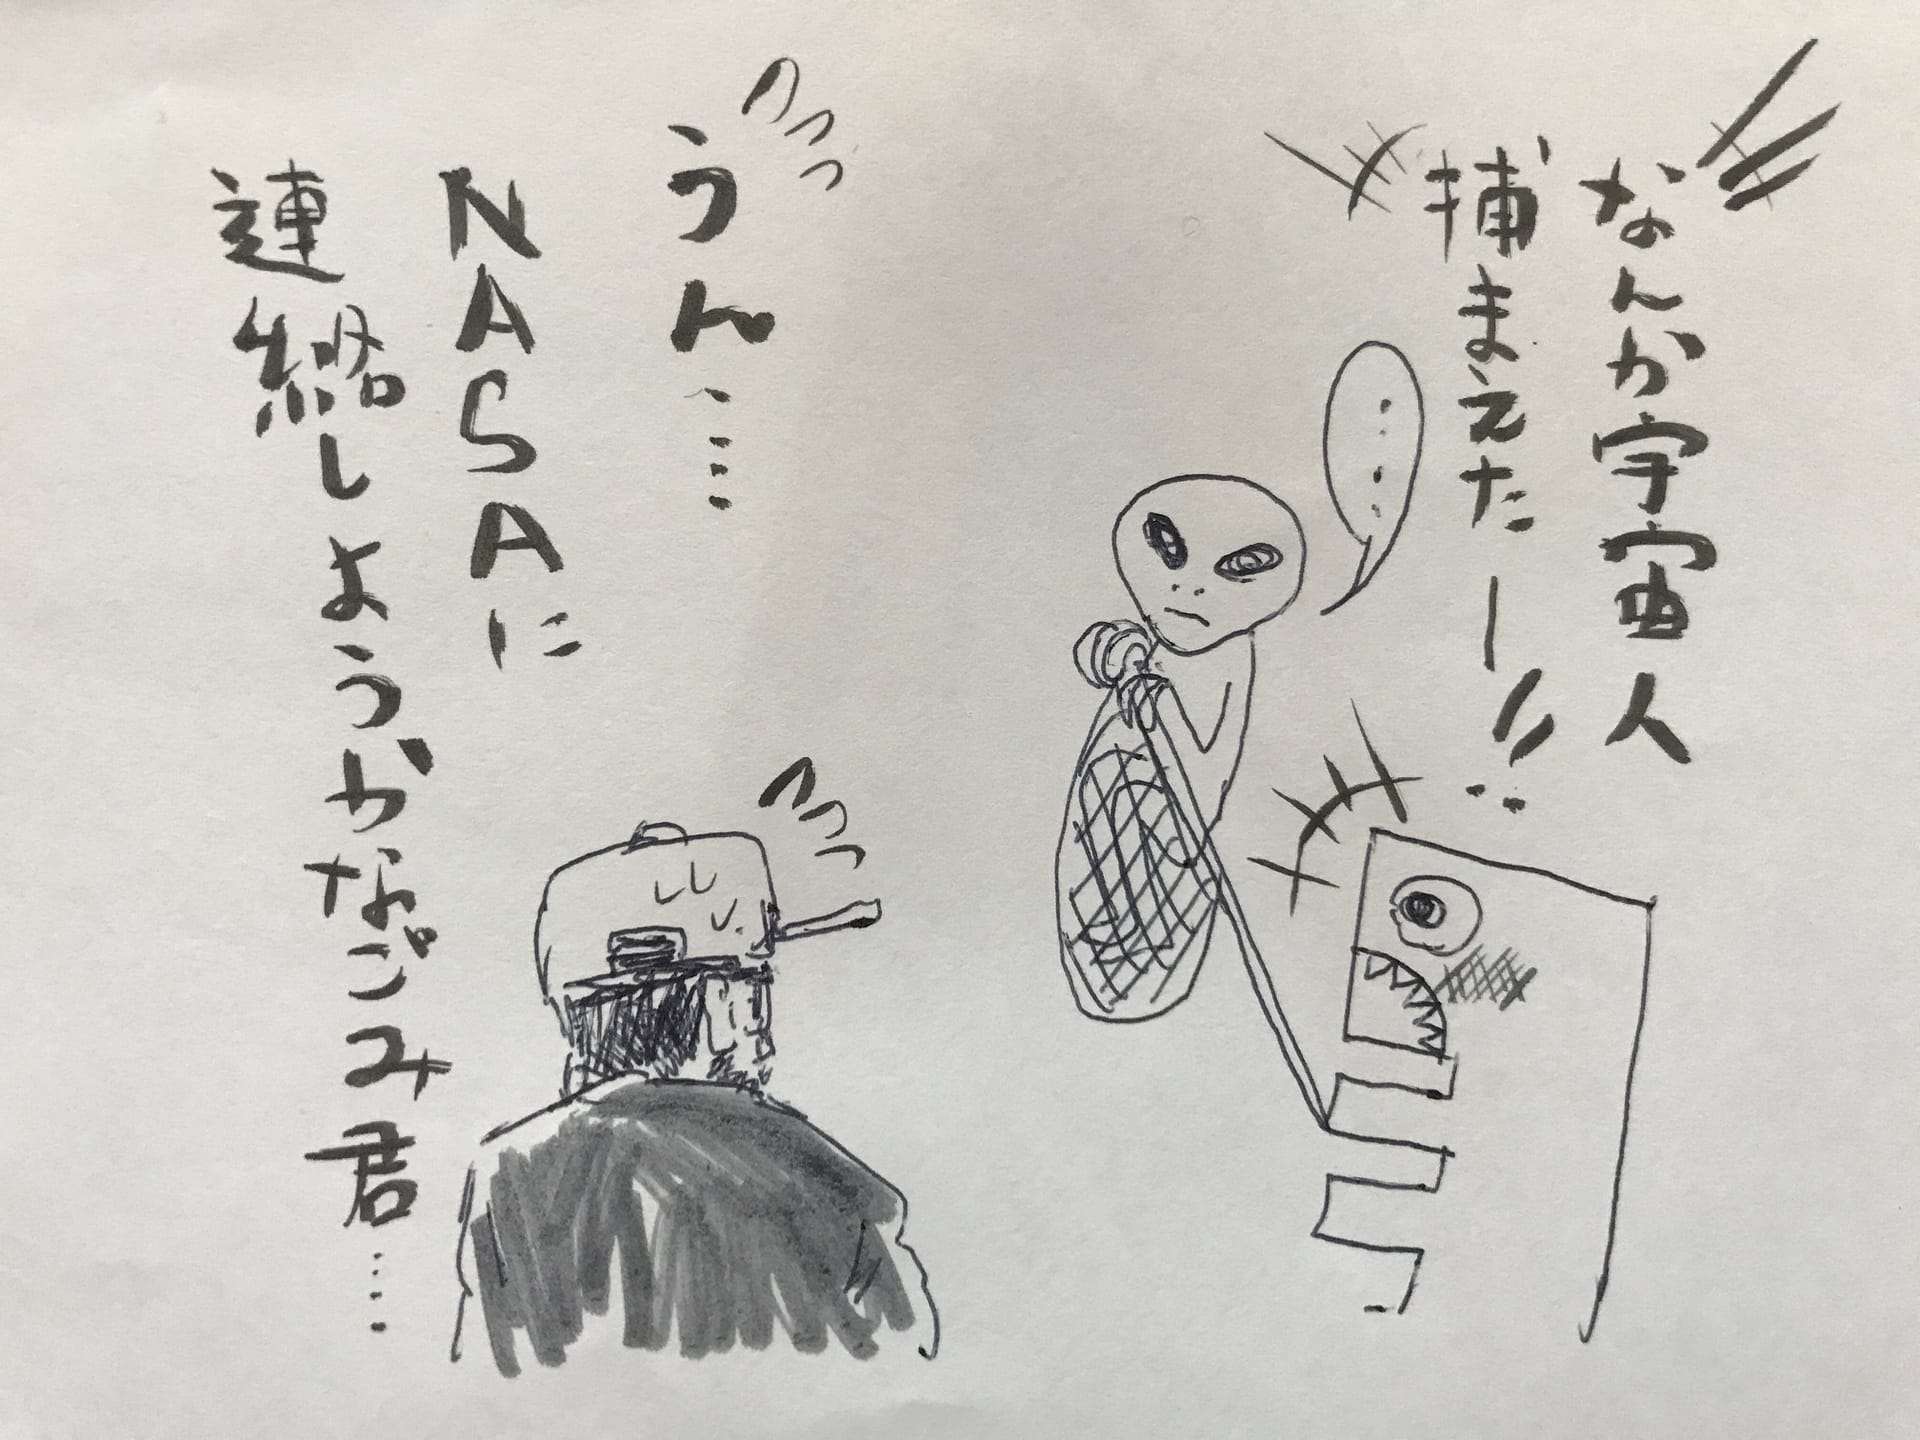 なんか宇宙人
捕まえたー!!
……
うん……
NASAに
連絡しようかなごみ君……